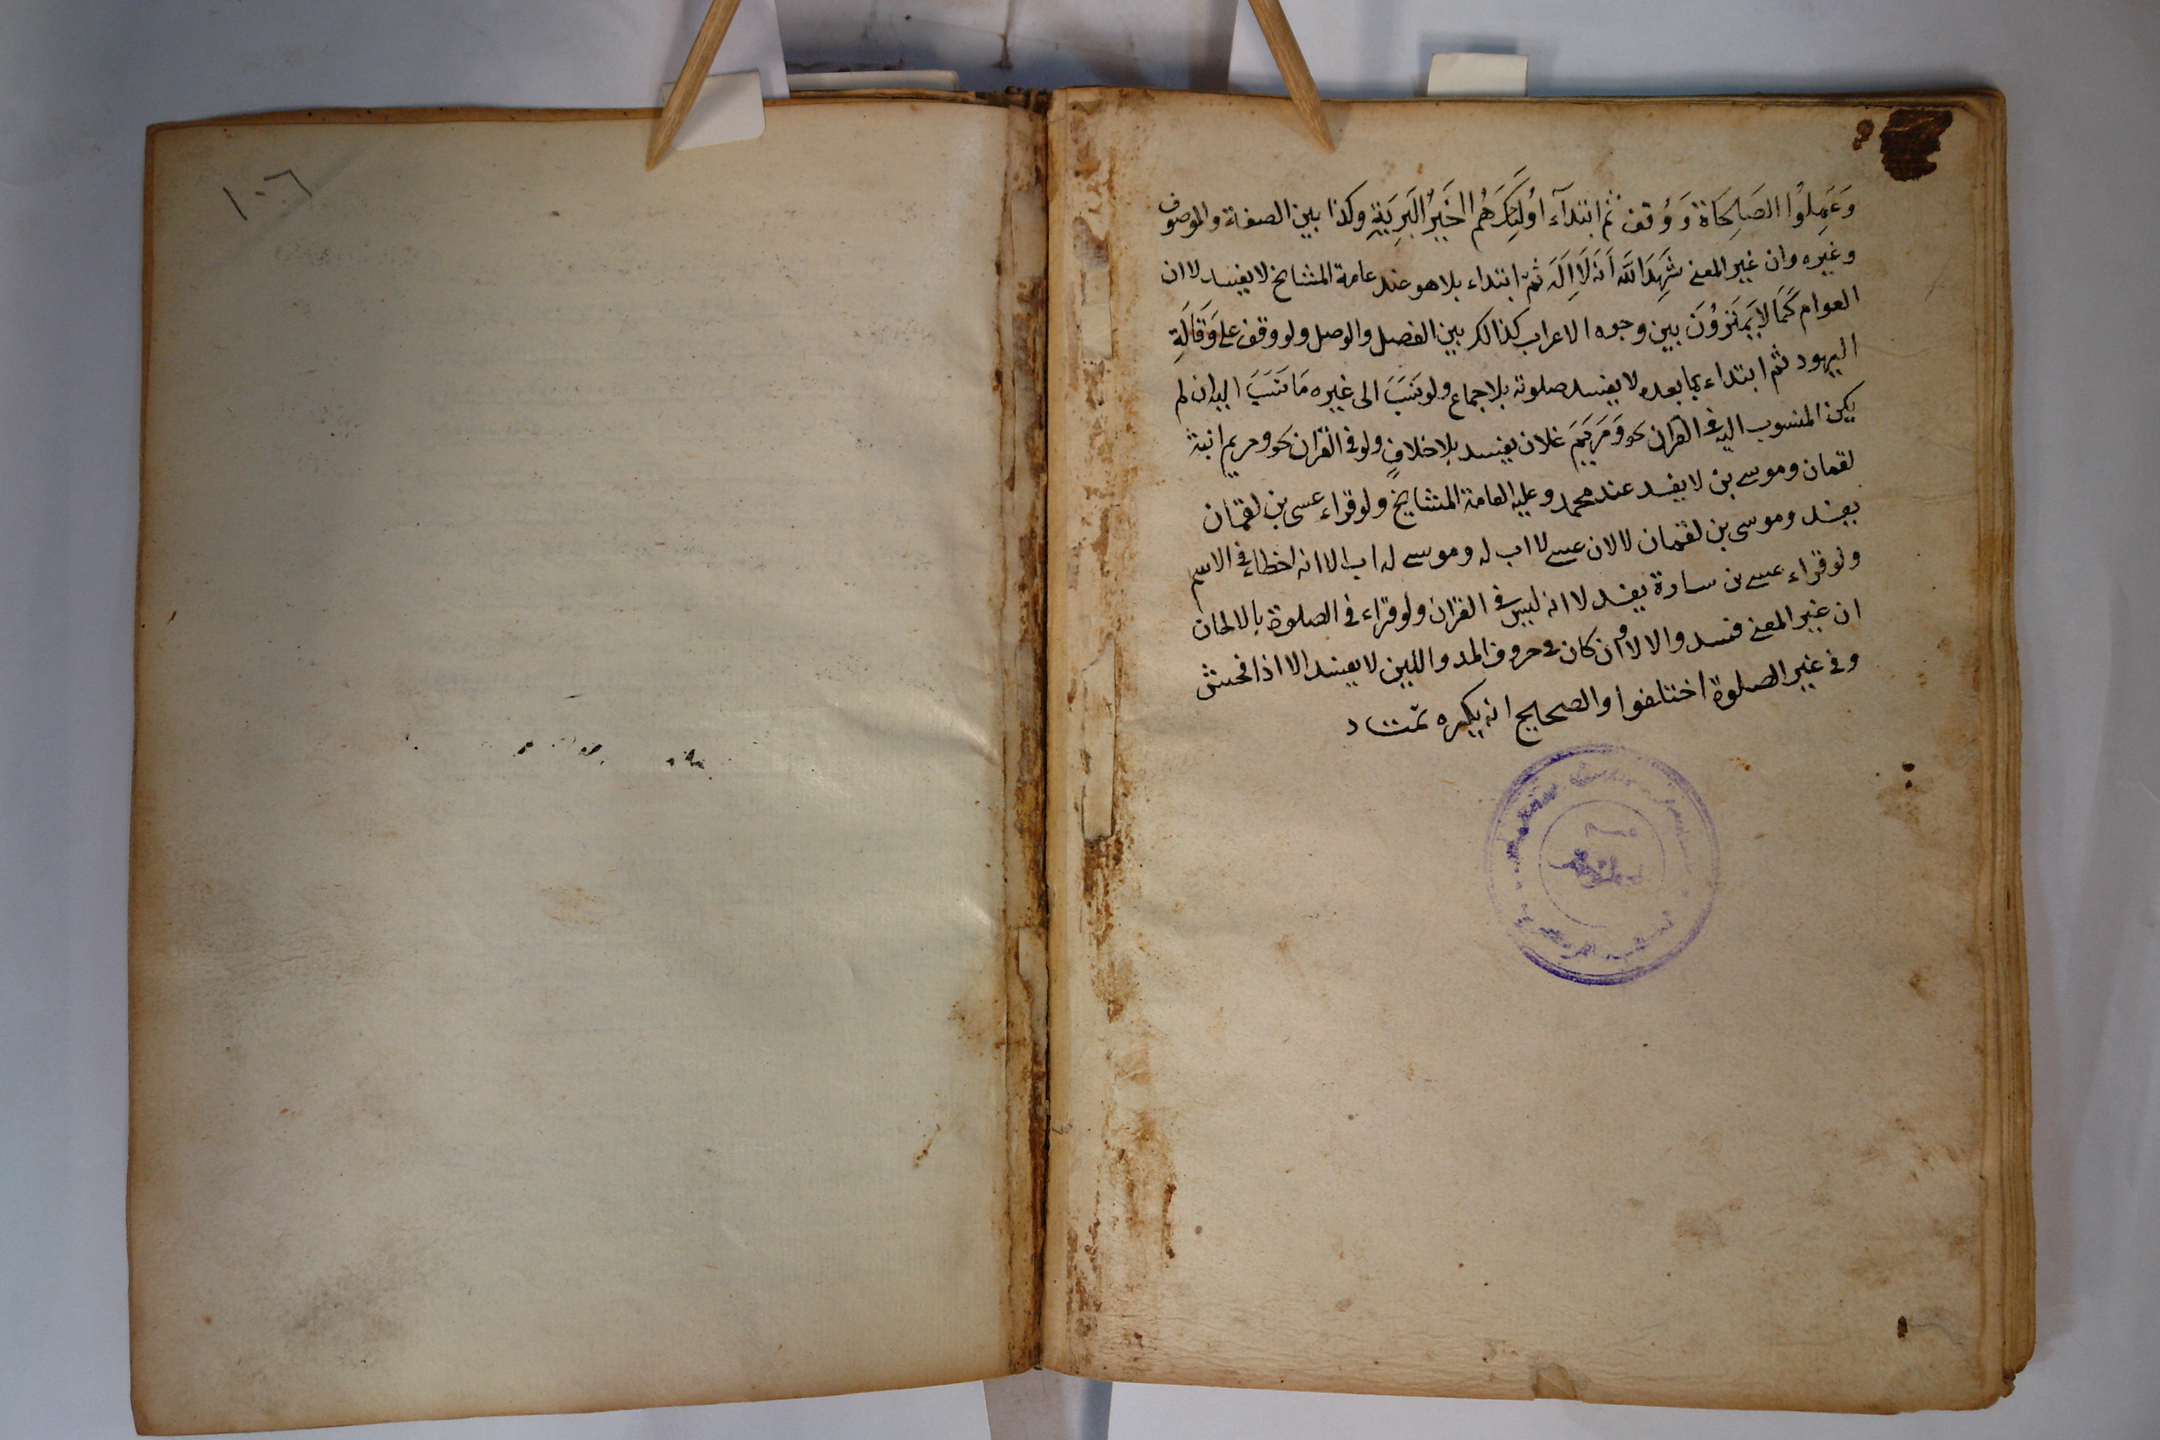 وَعَمِلُوا الصَالِحَاة وَوُقف ثم ابتدآء اوُلَئِكَ هُم الخَيرُ البَرِيَةِ وكذا بين الصفة والموصوف
وغيره وان غير المعنى شَهِدَ اللّٰه اَنَه لَا اِلَهَ ثُمّ ابتداء بلا هو عند عامة المشايخ لا يفسد لاان
العوام كَمَا لَا يَميَزوُنَ بين وجوه الاعراب كذالك بين الفصل والوصل ولو وقف على وَقَالَةِ
اليهود ثم ابتداء بما بعده لا يفسد صلوته بلاجماع ولو نَسَبَ الى غيره مَا نَسَبَ اليه ان لم
يكن المنسوب اليه فى القران نحو وَمَريَمَ غلان يفسد بلا خلافٍ ولو فى القران نحو ومريم ابنة
لقمان وموسى بن لا يفسد عند محمد وعليه العامة المشايخ ولو قراء عيسى بن لقمان
يفسد وموسى بن لقمان لا لان عيسى لا اب له وموسى له اب الا انه اخطاء فى الاسم
ولو قراء عيسى بن سارة يفسد لاانه ليس فى القران ولو قراء فى الصلوة بالالحان
ان غير المعنى فسد والا لا وان كان فى حروف المد واللين لا يفسد الا اذا فحش
وفى غير الصلوة اختلفوا والصحايح انه يكره تمت
١٠٦